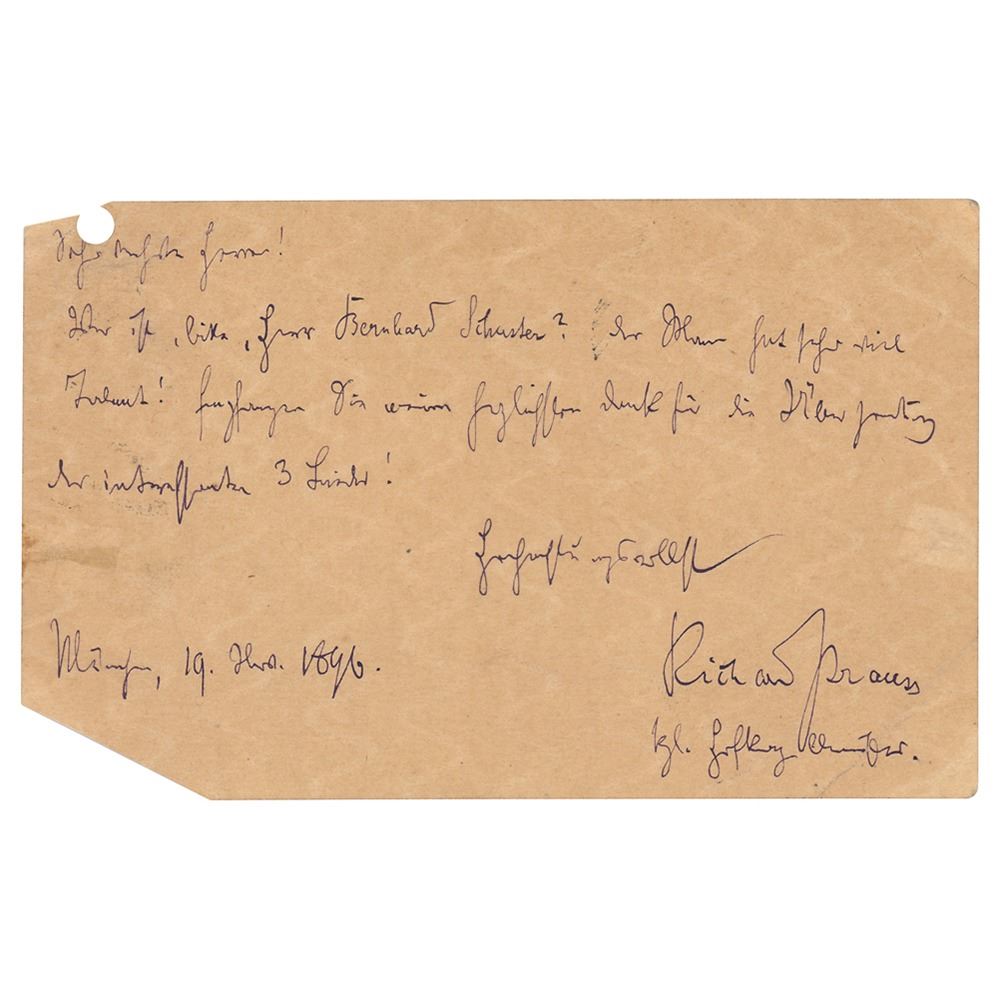 Sehr geehrter Herr!
Wer ist, bitte, Herr Bernhard Schuster? Der Mann hat sehr viel
Talent! Empfangen Sie meinen herzlichsten Dank für die Übersendung
der interessanten 3 Lieder!
Hochachtungsvollst
München, 19. Nov. 1896.
Richard Strauss
kgl. Hofkapellmeister.